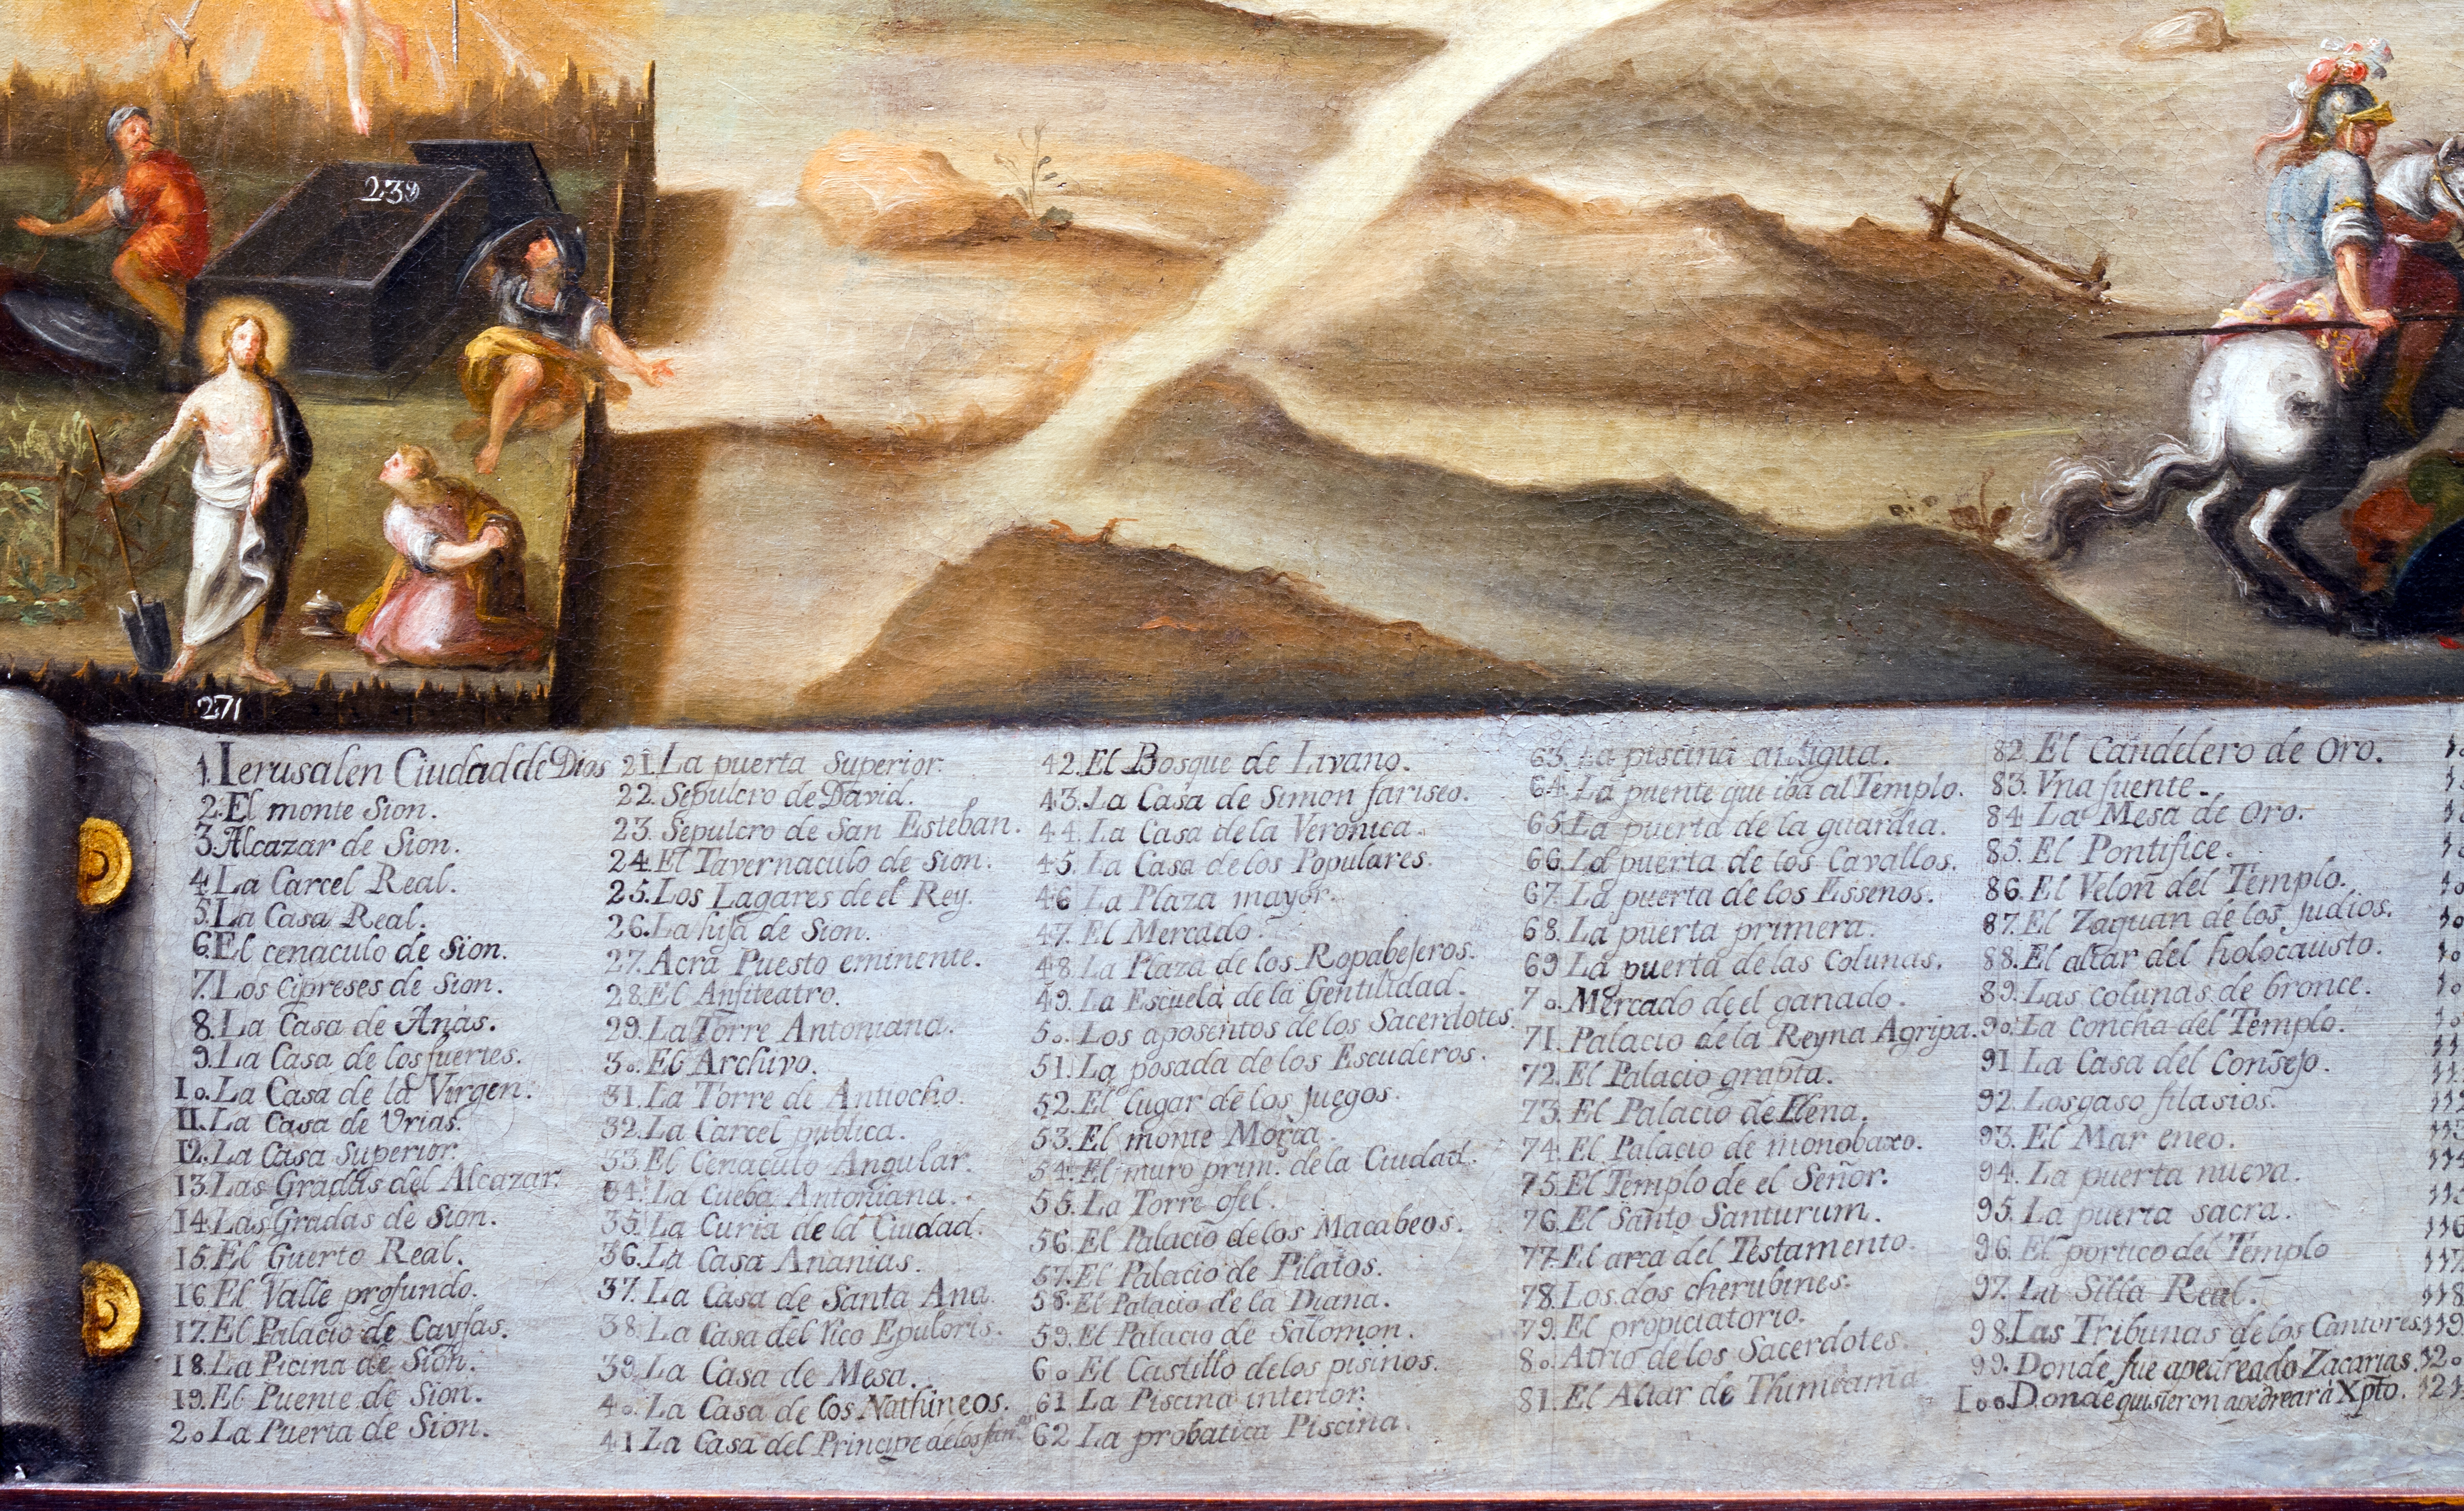 239
271
1. Ierusalen Ciudad de Dios
2. El monte Sion.
3. Alcazar de Sion.
4. La Carcel Real.
5. La Casa Real.
6. El cenaculo de Sion.
7. Los Cipreses de Sion.
8. La Casa de Anás.
9. La Casa de los fuertes.
1o. La Casa de la Virgen.
11. La Casa de Vrias.
12. La Casa Superior.
13. Las Gradas del Alcazar.
14. Las Gradas de Sion.
15. El Guerto Real.
16. El Valle profundo.
17. El Palacio de Cayfas.
18. La Picina de Sion.
19. El Puente de Sion.
2o La Puerta de Sion.
21. La puerta Superior.
22. Sepulcro de David.
23. Sepulcro de San Esteban.
24. El Tavernaculo de Sion.
25. Los Lagares de el Rey.
26. La hija de Sion.
27. Acra Puesto eminente.
28. El Anfiteatro.
29. La Torre Antoniana.
3o. El Archivo.
31. La Torre de Antiocho.
32. La Carcel publica.
33. El Cenaculo Angular.
34. La Cueba Antoniana.
35. La Curia de la Ciudad.
36. La Casa Ananias.
37. La Casa de Santa Ana.
38. La Casa del rico Epuloris.
39. La Casa de Mesa.
4o. La Casa de los Nathineos.
41 La Casa del Principe de los
42. El Bosque de Livano.
43. La Casa de Simon fariseo.
44. La Casa de la Veronica.
45. La Casa de los Populares.
46 La Plaza mayor.
47. El Mercado.
48. La Plaza de los Ropabejeros.
49. La Escuela de la Gentilidad.
5o. Los aposentos de los Sacerdotes.
51. La posada de los Escuderos.
52. El lugar de los juegos.
53. El monte Moria.
54. El muro prim. de la Ciudad.
55. La Torre ofel.
56. El Palacio de los Macabeos.
57. El Palacio de Pilatos.
58. El Palacio de la Diana.
59. El Palacio de Salomon.
6o El Castillo de los pisinos.
61 La Piscina interior.
62 La probatica Piscina.
63. La piscina antigua.
64. La puente que iba al Templo.
65. La puerta de la guardia.
66. La puerta de los Cavallos.
67. La puerta de los Essenos.
68. La puerta primera.
69 La puerta de las Colunas.
7o. Mercado de el ganado.
71. Palacio de la Reyna Agripa.
72. El Palacio grapta.
73. El Palacio de Elena.
74. El Palacio de monobaxo.
75. El Templo de el Señor.
76. El Santo Santurum.
77. El arca del Testamento.
78. Los dos cherubines.
79. El propiciatorio.
8o. Atrio de los Sacerdotes.
81. El Altar de Thimiama
82. El Candelero de Oro.
83. Vna fuente.
84. La Mesa de Oro.
85. El Pontifice.
86. El Velon del Templo.
87. El Zaguan de los judios.
88. El altar del holocausto.
89. Las colunas de bronce.
9o. La concha del Templo.
91 La Casa del Consejo.
92. Los gaso filasios.
93. El Mar eneo.
94. La puerta nueva.
95. La puerta sacra.
96. El portico del Templo
97. La Silla Real.
98. Las Tribunas de los Cantores.
99. Donde fue apedreado Zacarias.
1oo. Donde quisieron apedrear á Xpto.
116
117
118
119
12o
121